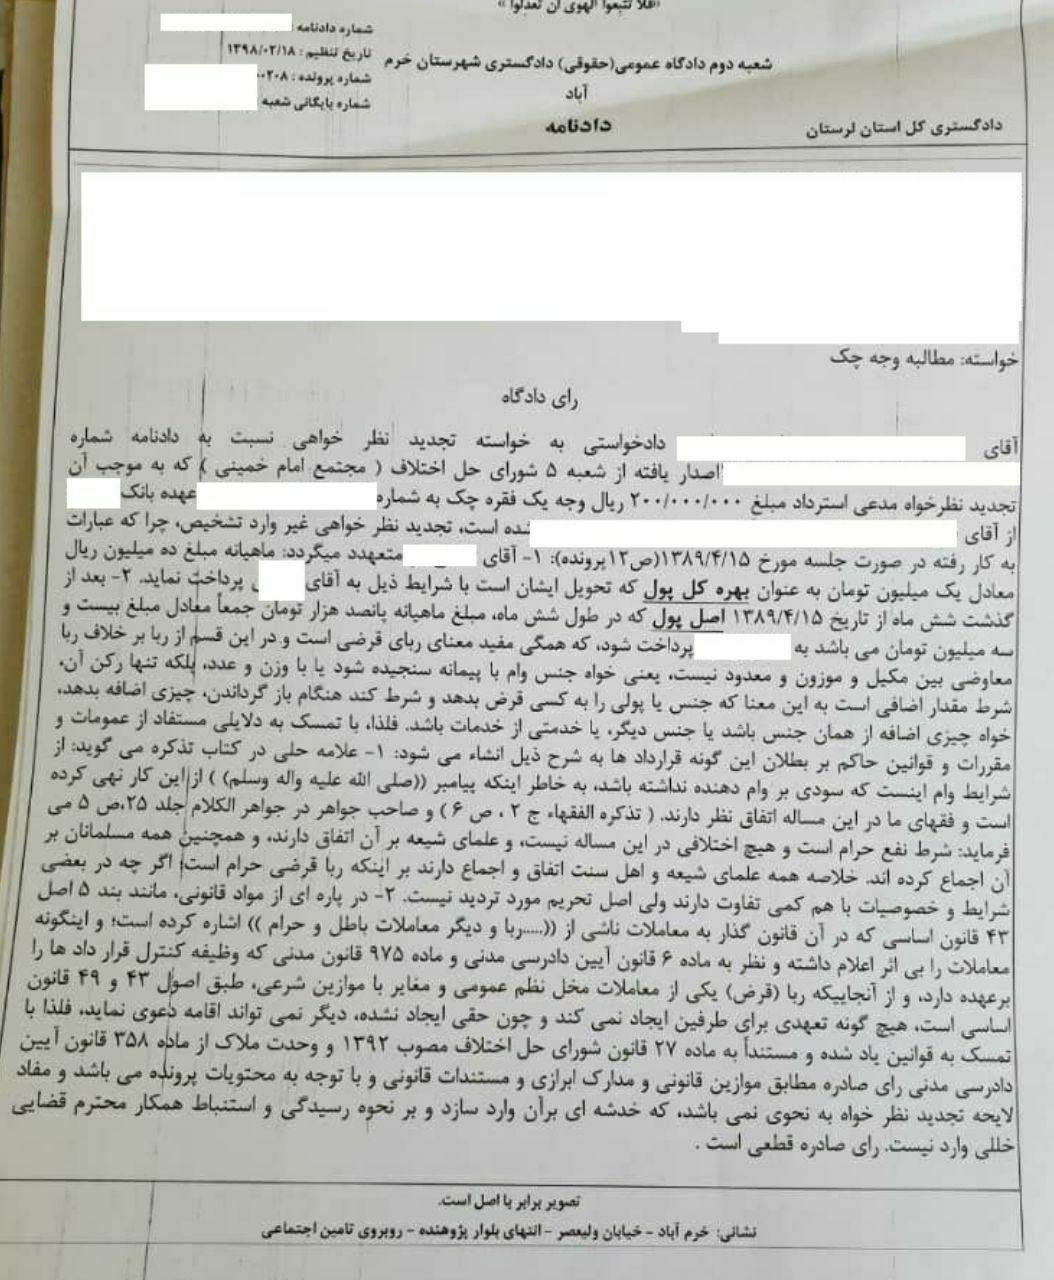 «فلا تتبعوا الهوی ان تعدلوا»
شماره دادنامه
تاریخ تنظیم : ۱۳۹۸/۰۲/۱۸
شماره پرونده : ۰۰۲۰۸
شماره بایگانی شعبه
شعبه دوم دادگاه عمومی(حقوقی) دادگستری شهرستان خرم
آباد
دادگستری کل استان لرستان
دادنامه
خواسته: مطالبه وجه چک
رای دادگاه
آقای دادخواستی به خواسته تجدید نظر خواهی نسبت به دادنامه شماره
اصدار یافته از شعبه ۵ شورای حل اختلاف ( مجتمع امام خمینی ) که به موجب آن
تجدید نظرخواه مدعی استرداد مبلغ ۲۰۰/۰۰۰/۰۰۰ ریال وجه یک فقره چک به شماره عهده بانک
از آقای شده است، تجدید نظر خواهی غیر وارد تشخیص، چرا که عبارات
به کار رفته در صورت جلسه مورخ ۱۳۸۹/۴/۱۵(ص۱۲پرونده): ۱- آقای متعهدد میگردد: ماهیانه مبلغ ده میلیون ریال
معادل یک میلیون تومان به عنوان بهره کل پول که تحویل ایشان است با شرایط ذیل به آقای پرداخت نماید. ۲- بعد از
گذشت شش ماه از تاریخ ۱۳۸۹/۴/۱۵ اصل پول که در طول شش ماه، مبلغ ماهیانه پانصد هزار تومان جمعاً معادل مبلغ بیست و
سه میلیون تومان می باشد به پرداخت شود، که همگی مفید معنای ربای قرضی است و در این قسم از ربا بر خلاف ربا
معاوضی بین مکیل و موزون و معدود نیست، یعنی خواه جنس وام با پیمانه سنجیده شود یا با وزن و عدد، بلکه تنها رکن آن،
شرط مقدار اضافی است به این معنا که جنس یا پولی را به کسی قرض بدهد و شرط کند هنگام باز گرداندن، چیزی اضافه بدهد،
خواه چیزی اضافه از همان جنس باشد یا جنس دیگر، یا خدمتی از خدمات باشد. فلذا، با تمسک به دلایلی مستفاد از عمومات و
مقررات و قوانین حاکم بر بطلان این گونه قرارداد ها به شرح ذیل انشاء می شود: ۱- علامه حلی در کتاب تذکره می گوید: از
شرایط وام اینست که سودی بر وام دهنده نداشته باشد، به خاطر اینکه پیامبر ((صلی الله علیه واله وسلم) ) از این کار نهی کرده
است و فقهای ما در این مساله اتفاق نظر دارند. ( تذکره الفقهاء ج ۲ ، ص ۶ ) و صاحب جواهر در جواهر الکلام جلد ۲۵،ص ۵ می
فرماید: شرط نفع حرام است و هیچ اختلافی در این مساله نیست، و علمای شیعه بر آن اتفاق دارند، و همچنین همه مسلمانان بر
آن اجماع کرده اند. خلاصه همه علمای شیعه و اهل سنت اتفاق و اجماع دارند بر اینکه ربا قرضی حرام است، اگر چه در بعضی
شرایط و خصوصیات با هم کمی تفاوت دارند ولی اصل تحریم مورد تردید نیست. ۲- در پاره ای از مواد قانونی، مانند بند ۵ اصل
۴۳ قانون اساسی که در آن قانون گذار به معاملات ناشی از ((.....ربا و دیگر معاملات باطل و حرام )) اشاره کرده است؛ و اینگونه
معاملات را بی اثر اعلام داشته و نظر به ماده ۶ قانون آیین دادرسی مدنی و ماده ۹۷۵ قانون مدنی که وظیفه کنترل قرار داد ها را
برعهده دارد، و از آنجاییکه ربا (قرض) یکی از معاملات مخل نظم عمومی و مغایر با موازین شرعی، طبق اصول ۴۳ و ۴۹ قانون
اساسی است، هیچ گونه تعهدی برای طرفین ایجاد نمی کند و چون حقی ایجاد نشده، دیگر نمی تواند اقامه دعوی نماید، فلذا با
تمسک به قوانین یاد شده و مستنداً به ماده ۲۷ قانون شورای حل اختلاف مصوب ۱۳۹۲ و وحدت ملاک از ماده ۳۵۸ قانون آیین
دادرسی مدنی رای صادره مطابق موازین قانونی و مدارک ابرازی و مستندات قانونی و با توجه به محتویات پرونده می باشد و مفاد
لایحه تجدید نظر خواه به نحوی نمی باشد، که خدشه ای برآن وارد سازد و بر نحوه رسیدگی و استنباط همکار محترم قضایی
خللی وارد نیست. رای صادره قطعی است .
تصویر برابر با اصل است.
نشانی: خرم آباد - خیابان ولیعصر - انتهای بلوار پژوهنده - روبروی تامین اجتماعی